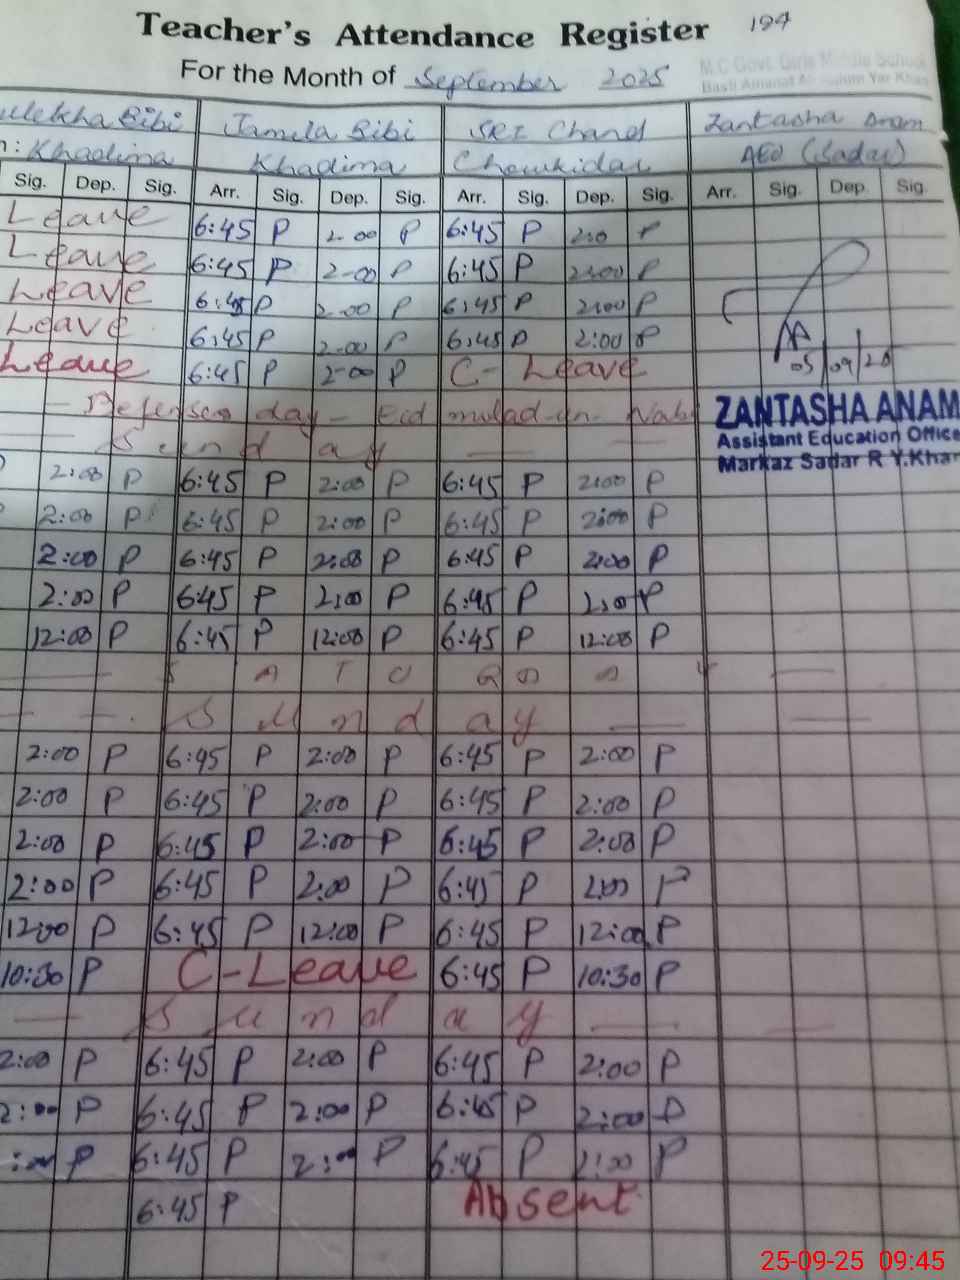 Teacher's Attendance Register 194
For the Month of September 2025
M.C Govt. Girls Middle School
Basti Amanat Yar Khan
ulekha Bibi Jamila Bibi SRI Chand Zantasha Anam
n: Khadima Khadima Chowkidar AEO (Sadar)
Sig. Dep. Sig. Arr. Sig. Dep. Sig. Arr. Sig. Dep. Sig. Arr. Sig. Dep. Sig.
Leave 6:45 P 2-00 P 6:45 P 2:0 P
Leave 6:45 P 2-00 P 6:45 P 2:00 P
Leave 6:45 P 2-00 P 6:45 P 2:00 P
Leave 6:45 P 2-00 P 6:45 P 2:00 P
Leave 6:45 P 2-00 P C- Leave
05/09/25
- Defense day - Eid milad-un-Nabi
ZANTASHA ANAM
Assistant Education Office
Markaz Sadar R Y.Khan
Sunday
2:00 P 6:45 P 2:00 P 6:45 P 2:00 P
2:00 P 6:45 P 2:00 P 6:45 P 2:00 P
2:00 P 6:45 P 2:00 P 6:45 P 2:00 P
2:00 P 6:45 P 2:00 P 6:45 P 2:00 P
12:00 P 6:45 P 12:00 P 6:45 P 12:00 P
Sunday
2:00 P 6:45 P 2:00 P 6:45 P 2:00 P
2:00 P 6:45 P 2:00 P 6:45 P 2:00 P
2:00 P 6:45 P 2:00 P 6:45 P 2:00 P
2:00 P 6:45 P 2:00 P 6:45 P 2:00 P
12:00 P 6:45 P 12:00 P 6:45 P 12:00 P
10:30 P C-Leave 6:45 P 10:30 P
Sunday
2:00 P 6:45 P 2:00 P 6:45 P 2:00 P
2:00 P 6:45 P 2:00 P 6:45 P 2:00 P
:00 P 6:45 P 2:00 P 6:45 P 2:00 P
6:45 P Absent
25-09-25 09:45